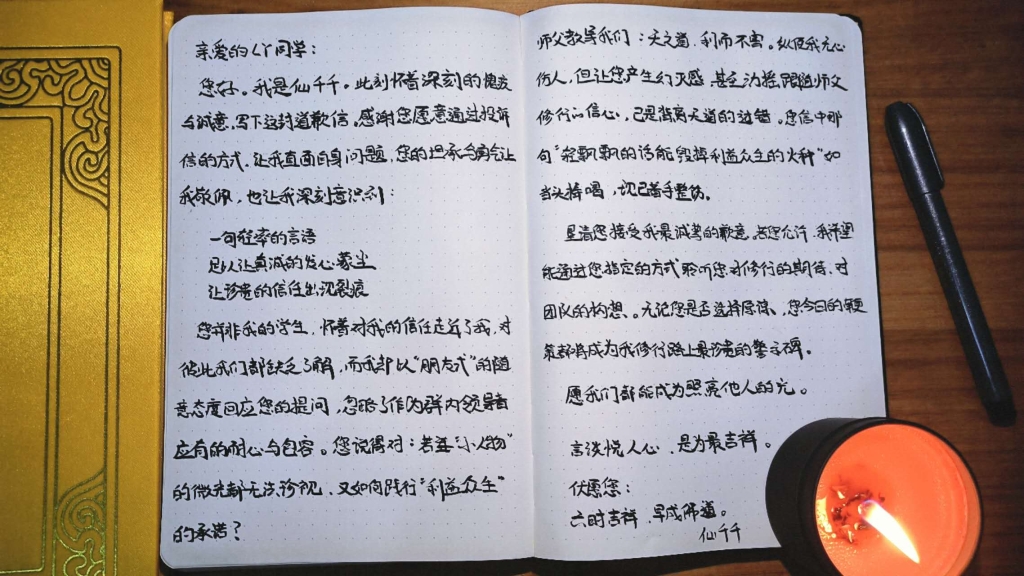 亲爱的LY同学：
您好。我是仙千千。此刻怀着深刻的愧疚
与诚意，写下这封道歉信。感谢您愿意通过投诉
信的方式，让我直面自身问题，您的坦承与勇会让
我敬佩，也让我深刻意识到：
一句轻率的言语
足以让真诚的发心蒙尘
让珍贵的信任出现裂痕
您并非我的学生，怀着对我的信任走近了我，对
彼此我们都缺乏了解，而我却以“朋友式”的随
意态度回应您的提问，忽略了作为群内领导者
应有的耐心与包容。您说得对：若连“小人物”
的微光都无法珍视，又如何践行“利益众生”
的承诺？
师父教导我们：天之道，利而不害。纵使我无心
伤人，但让您产生幻灭感，甚至动摇跟随师父
修行的信心，已是背离天道的过错。您信中那
句“轻飘飘的话能毁掉利益众生的火种”如
当头棒喝，我已着手整饬。
恳请您接受我最诚挚的歉意。若您允许，我希望
能通过您指定的方式聆听您对修行的期待、对
团队的构想、无论您是否选择原谅、您今日的鞭
策都将成为我修行路上最珍贵的警示碑。
愿我们都能成为照亮他人的光。
言谈悦人心，是为最吉祥。
伏愿您：
六时吉祥，早成佛道。
仙千千